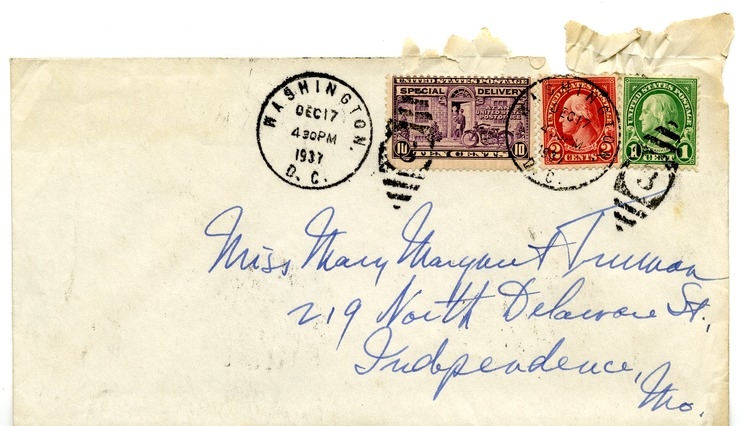 WASHINGTON.
DEC 17
4 30 PM
1937
D. C.
UNITED STATES POSTAGE
SPECIAL DELIVERY
10 TEN CENTS 10
2 CENTS 2
UNITED STATES POSTAGE
1 CENT 1
3
Miss Mary Margaret Truman
219 North Delaware St.,
Independence,
Mo.